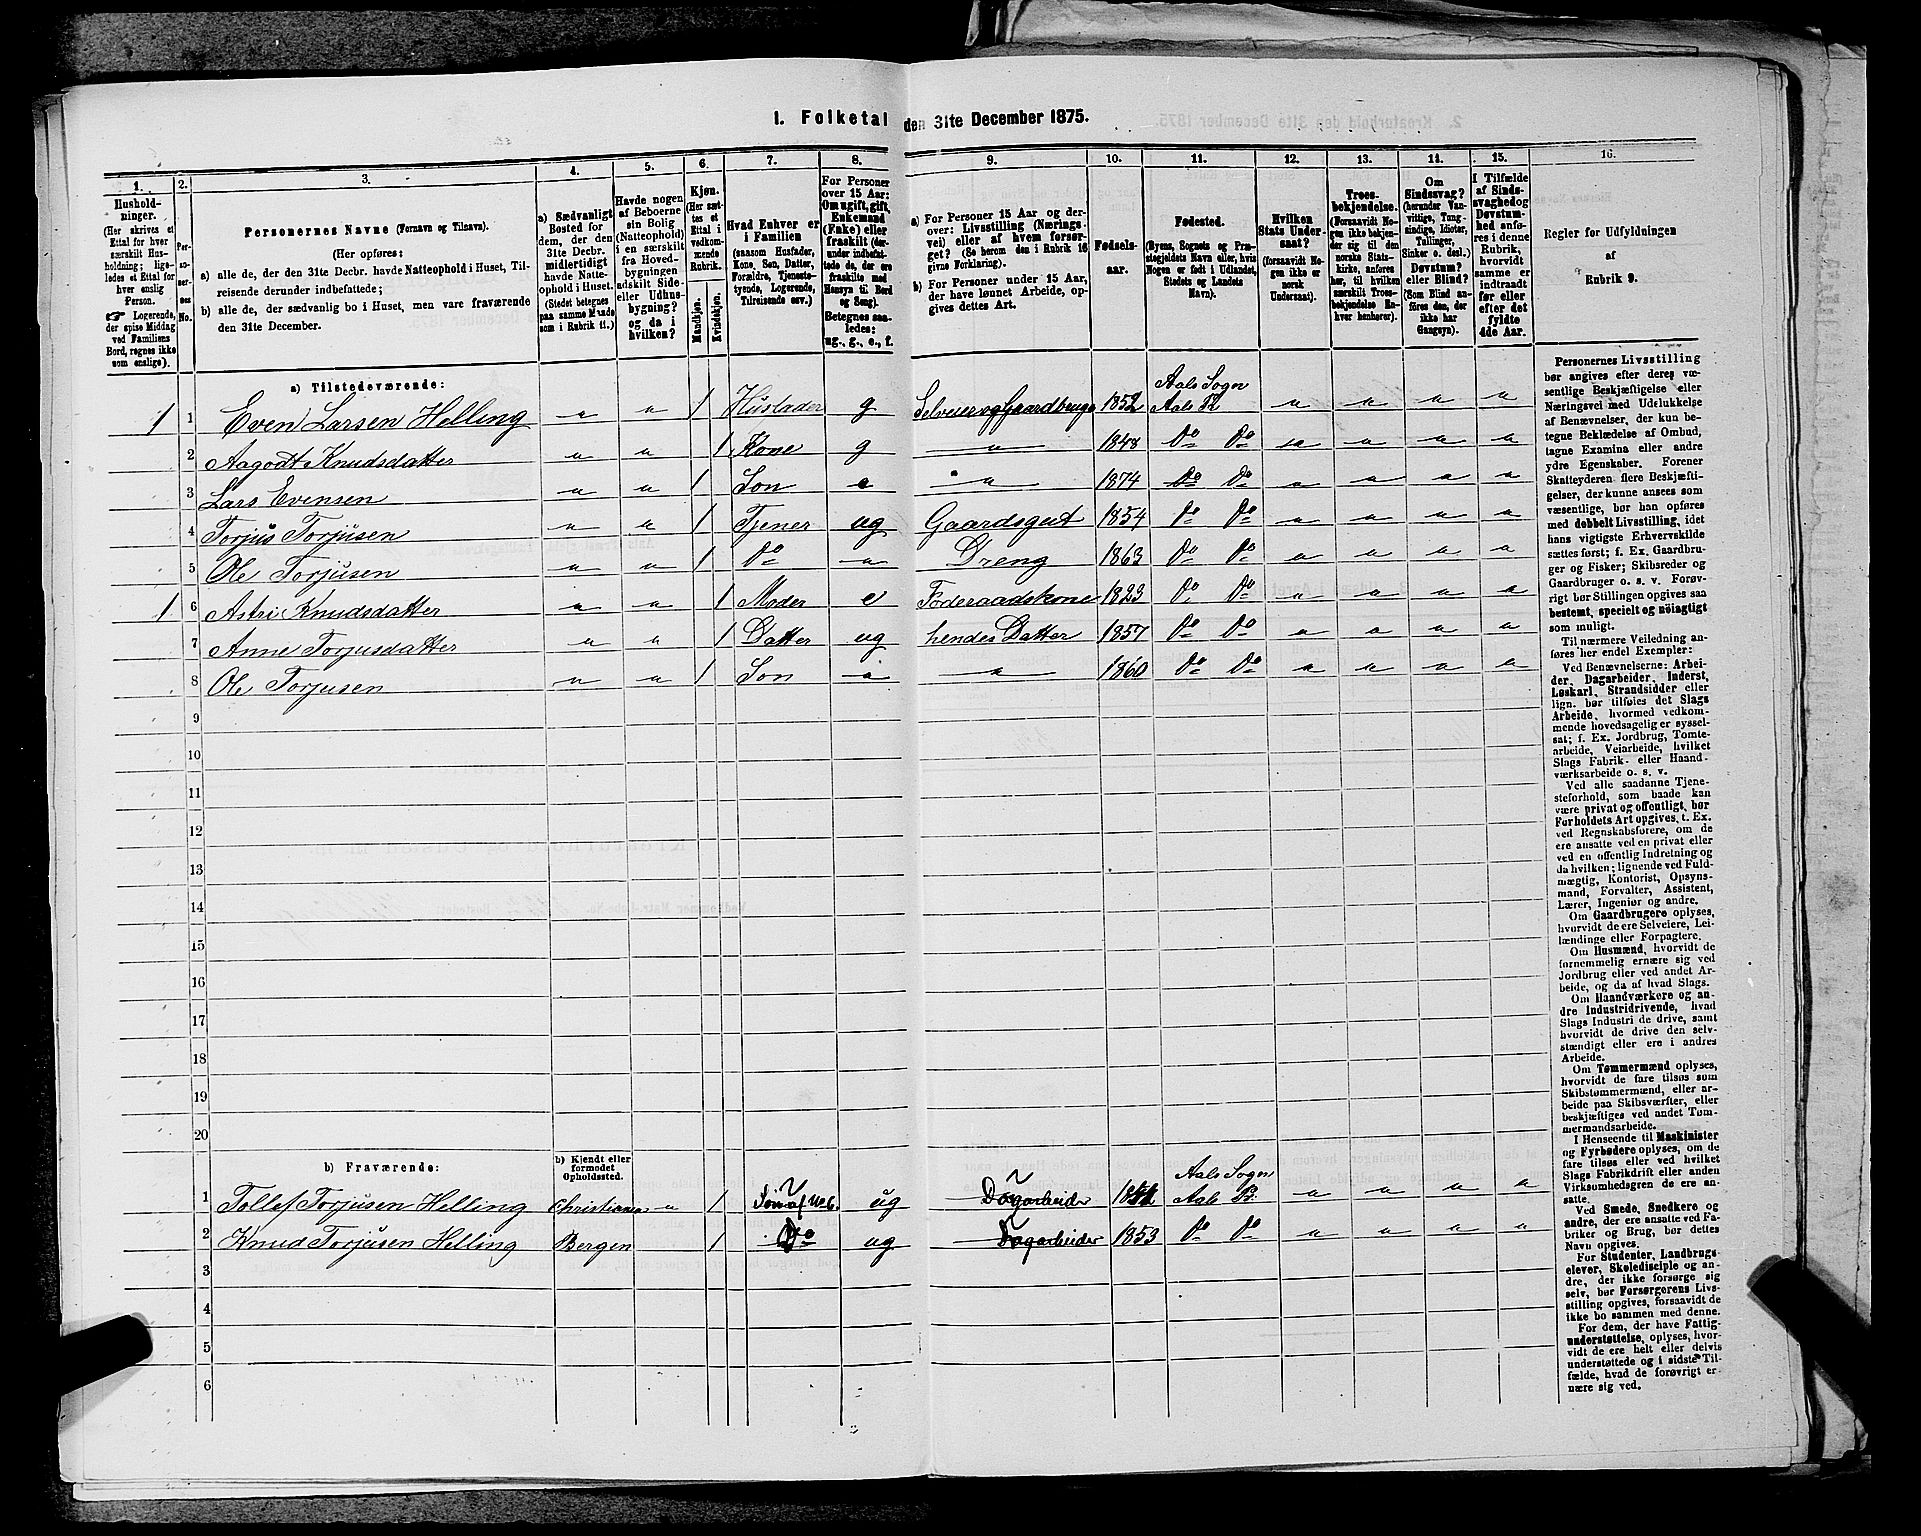 1. Folketal den 31te December 1875.
1.
Husholdninger.
(Her skrives et
Ettal for hver
særskilt Husholdning;
ligeledes et Ettal for
hver enslig
Person.
☞ Logerende,
der spise Middag
ved Familiens
Bord, regnes ikke
som enslige).
2.
Personernes
No.
3.
Personernes Navne (Fornavn og Tilnavn).
(Her opføres:
a) alle de, der den 31te Decbr. havde Natteophold i Huset, Tilreisende derunder indbefattede;
b) alle de, der sædvanlig bo i Huset, men vare fraværende
den 31te December.
4.
a) Sædvanligt
Bosted for
dem, der den
31te Decbr.
midlertidigt
havde Natteophold
i Huset.
(Stedet betegnes
paa samme Maade
som i Rubrik 11.)
5.
Havde nogen
af Beboerne
sin Bolig
(Natteophold)
i en særskilt
fra Hovedbygningen
adskilt Side-
eller Udhusbygning?
og da i
hvilken?
6.
Kjøn.
(Her sættes
et
Ettal i
vedkommende
Rubrik.
Mandkjøn.
Kvindekjøn.
7.
Hvad Enhver er
i Familien
(saasom Husfader,
Kone, Søn, Datter,
Forældre, Tjenestetyende,
Logerende,
Tilreisende osv.)
8.
For Personer
over 15 Aar:
Om ugift, gift,
Enkemand
(Enke) eller
fraskilt (derunder
indbefattede
de, der ere
fraskilte med
Hensyn til Bord
og Seng).
Betegnes saaledes:
ug., g., e., f.
9.
a) For Personer 15 Aar og derover:
Livsstilling (Næringsvei)
eller af hvem forsørget?
(Se herom den i Rubrik 16
givne Forklaring).
b) For Personer under 15 Aar,
der have lønnet Arbeide, opgives
dettes Art.
10.
Fødselsaar.
11.
Fødested.
(Byens, Sognets og Præstegjeldets
Navn eller, hvis
Nogen er født i Udlandet,
Stedets og Landets
Navn).
12.
Hvilken
Stats Undersaat?
(forsaavidt Nogen
ikke er
norsk
Undersaat).
13.
Troesbekjendelse.
(Forsaavidt Nogen
ikke bekjender
sig til den
norske Statskirke,
anføres
her, til hvilken
særskilt Troesbekjendelse
Enhver
henhører).
14.
Om
Sindssvag?
(herunder Vanvittige,
Tungsindige,
Idioter,
Tullinger,
Sinker o. desl.)
Døvstum?
eller Blind?
(Som Blind anføres
den, der
ikke har
Gangsyn).
15.
I Tilfælde
af Sindssvaghed
og
Døvstumhed
anføres
i denne
Rubrik,
hvorvidt
samme er
indtraadt
før eller
efter det
fyldte
4de Aar.
16.
Regler for Udfyldningen
af
Rubrik 9.
a) Tilstedeværende:
Aals Sogn
1 1 Even Larsen Helling " " 1 Husfader g Selveier og Gaardbruger 1852 Aals Pr. " " " "
2 Aagodt Knudsdatter " " 1 Kone g " 1848 Do Do " " " "
3 Lars Evensen " " 1 Søn " 1874 Do Do " " " "
4 Torjus Torjusen " " 1 Tjener ug Gaardsgut 1854 Do Do " " " "
5 Ole Torjusen " " 1 Do " Dreng 1863 Do Do " " " "
1 6 Astri Knudsdatter " " 1 Moder e Føderaadskone 1823 Do Do " " " "
7 Anne Torjusdatter " " 1 Datter ug hendes Datter 1857 Do Do " " " "
8 Ole Torjusen " " 1 Søn " " 1860 Do Do " " " "
9
10
11
12
13
14
15
16
17
18
19
20
b) Fraværende:
b) Kjendt eller
formodet
Opholdssted.
Aals Sogn
1 Tollef Torjusen Helling Christiania " 1 Søn af No 6. ug Dagarbeider Aals Pr. " " " "
2 Knud Torjusen Helling Bergen 1 Do ug Dagarbeider 1853 Do Do " " " "
3
4
5
6
Personernes Livsstilling
bør angives efter deres væsentlige
Beskjæftigelse eller
Næringsvei med Udelukkelse
af Benævnelser, der kun betegne
Beklædelse af Ombud,
tagne Examina eller andre
ydre Egenskaber. Forener
Skatteyderen flere Beskjæftigelser,
der kunne ansees som
væsentlige, bør han opføres
med dobbelt Livsstilling, idet
hans vigtigste Erhvervskilde
sættes først; f. Ex. Gaardbruger
og Fisker; Skibsreder og
Gaardbruger o. s. v. Forøvrigt
bør Stillingen opgives saa
bestemt, specielt og nöiagtigt
som muligt.
Til nærmere Veiledning anføres
her endel Exempler:
Ved Benævnelserne: Arbeider,
Dagarbeider, Inderst,
Løskarl, Strandsidder eller
lign. bør tilføies det Slags
Arbeide, hvormed vedkommende
hovedsagelig er sysselsat;
f. Ex. Jordbrug, Tomtearbeide,
Veiarbeide, hvilket
Slags Fabrik- eller Haandværksarbeide
o. s. v.
Ved alle saadanne Tjenesteforhold,
som baade kan
være privat og offentligt, bør
Forholdets Art opgives, t. Ex.
ved Regnskabsførere, om de
ere ansatte ved en privat eller
ved en offentlig Indretning og
da hvilken; lignende ved Fuldmægtig,
Kontorist, Opsynsmand,
Forvalter, Assistent,
Lærer, Ingeniør og andre.
Om Gaardbrugere oplyses,
hvorvidt de ere Selveiere, Leilændinge
eller Forpagtere.
Om Husmænd, hvorvidt de
fornemmelig ernære sig ved
Jordbrug eller ved andet Arbeide,
og da af hvad Slags.
Om Haandværkere og andre
Industridrivende, hvad
Slags Industri de drive, samt
hvorvidt de drive den selvstændigt
eller ere i andres
Arbeide.
Om Tømmermænd oplyses,
hvorvidt de fare tilsøs som
Skibstømmermænd, eller arbeide
paa Skibsværfter, eller
beskjæftiges ved andet Tømmermandsarbeide.
I Henseende til Maskinister
og Fyrbødere oplyses, om de
fare tilsøs eller ved hvilket
Slags Fabrikdrift eller anden
Virksomhedsgren de ere ansatte.
Ved Smede, Snedkere og
andre, der ere ansatte ved Fabriker
og Brug, bør dettes
Navn opgives.
For Studenter, Landbrugselever,
Skoledisciple og andre,
der ikke forsørge sig
selv, bør Forsørgerens Livsstilling
opgives, forsaavidt de
ikke bo sammen med denne.
For dem, der have Fattigunderstøttelse,
oplyses, hvorvidt
de ere helt eller delvis
understøttede og i sidste Tilfælde,
hvad de forøvrigt ernære
sig ved.